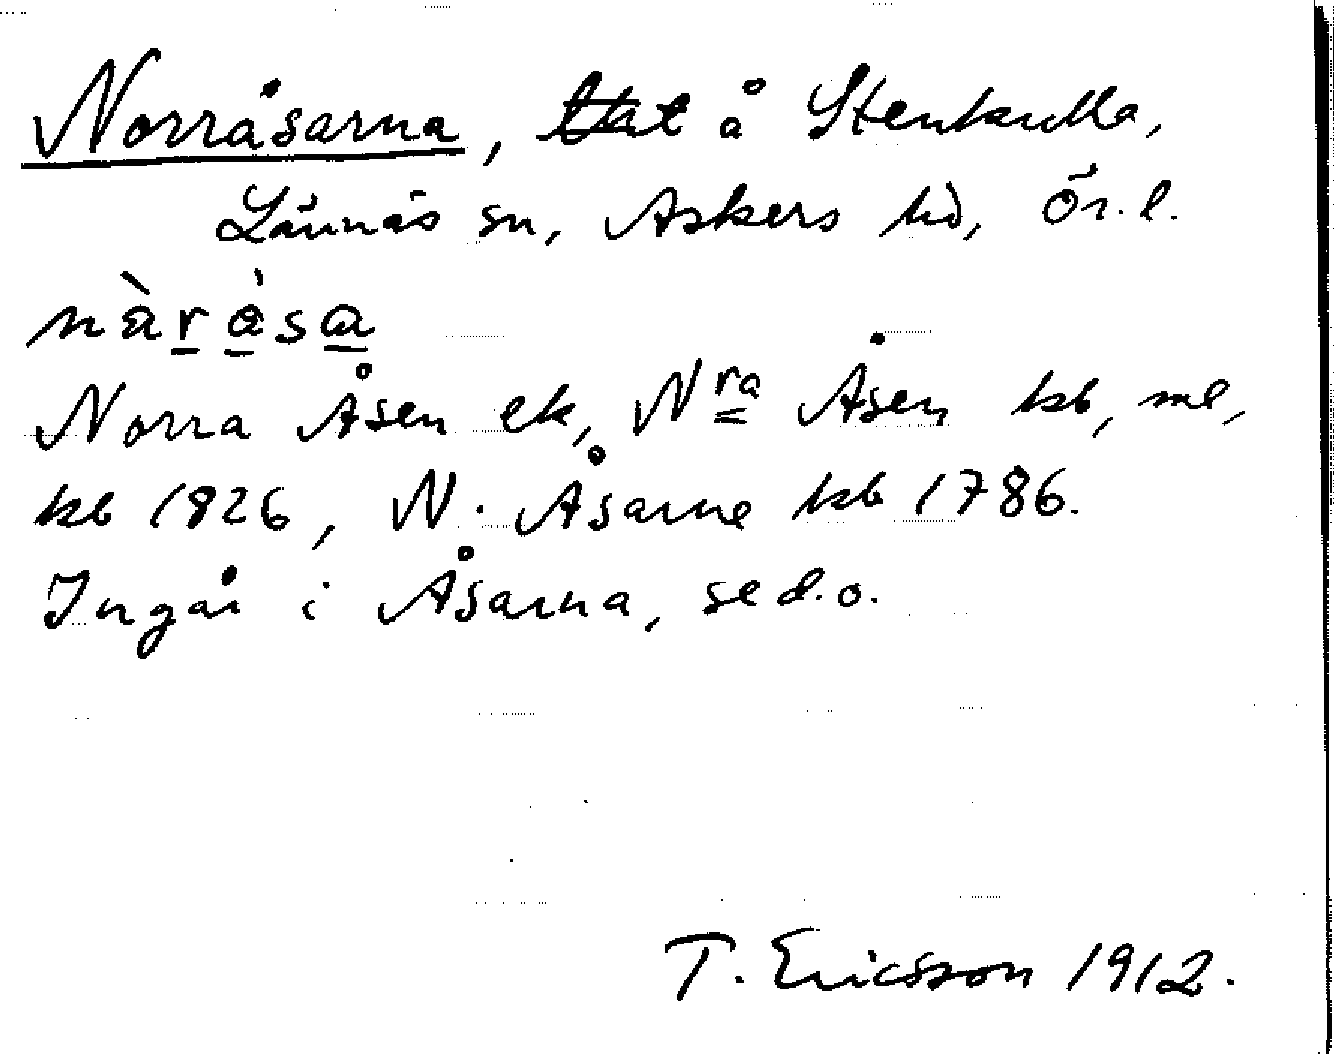 Norråsarna, t å Stenkulla,
Lännäs sn, Askers hd, Ör. l.
nàråsa
Norra Åsen ek, Nra Åsen kb, ml,
kb 1826, N. Åsarne kb 1786.
Ingår i Åsarna, se d.o.
T. Ericsson 1912.